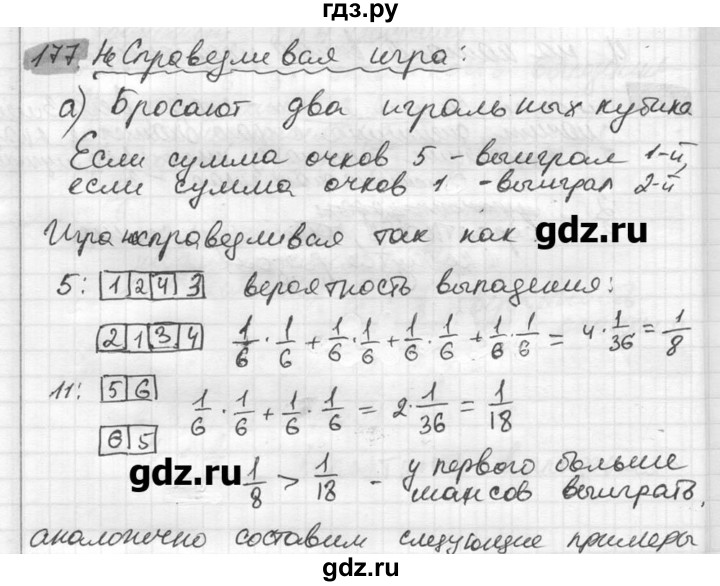 гдз.ру
177 НеСправедливая игра:
а) Бросают два игральных кубика
Если сумма очков 5 - выиграл 1-й,
если сумма очков 1 - выиграл 2-й
Игра несправедливая так как гдз.ру
5: 1 2 4 3 вероятность выпадения:
2 1 3 4 1/6 · 1/6 + 1/6 · 1/6 + 1/6 · 1/6 + 1/6 · 1/6 = 4 · 1/36 = 1/8
11: 5 6 1/6 · 1/6 + 1/6 · 1/6 = 2 · 1/36 = 1/18
6 5
гдз.ру 1/8 > 1/18 - у первого больше
шансов выиграть,
аналогично составим следующие примеры
гдз.ру